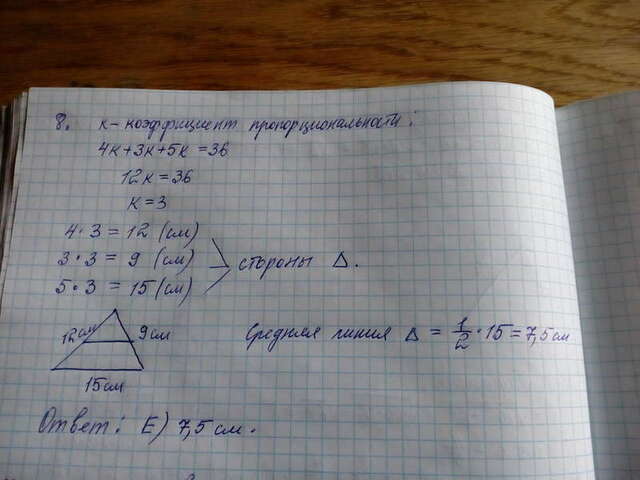 8. к-коэффициент пропорциональности:
4к+3к+5к=36
12к=36
к=3
4·3=12 (см)
3·3=9 (см)
5·3=15(см)
стороны Δ.
12см 9см
Средняя линия Δ = 1/2·15=7,5см
15см
Ответ: Е) 7,5см.